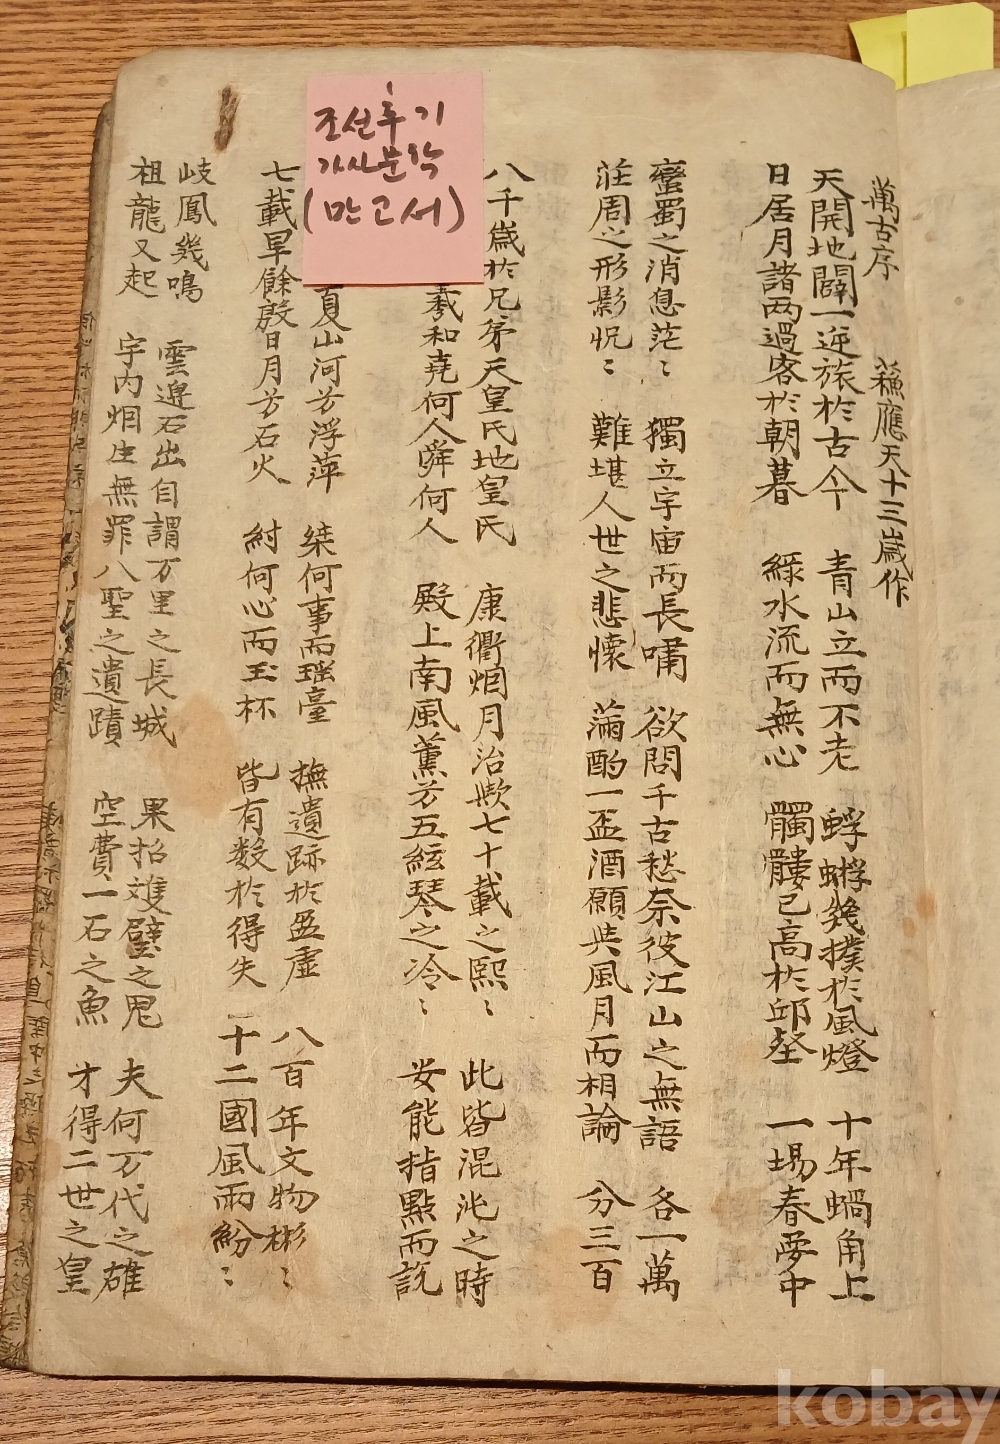 萬古序 蘓應天十三歲作
天開地闢一逆旅於古今 青山立而不老 蜉蝣幾撲於風燈 十年蝸角上
日居月諸两過客於朝暮 綠水流而無心 髑髏已高於邱壑 一場春夢中
蠻蜀之消息茫〻 獨立宇宙而長嘯 欲問千古愁奈彼江山之無語 各一萬
莊周之形影怳〻 難堪人世之悲懷 滿酌一盃酒願與風月而相論 分三百
八千歲於兄弟天皇氏地皇氏 康衢烟月治歟七十載之熙〻 此皆混沌之時
羲和堯何人舜何人 殿上南風薰兮五絃琴之冷〻 安能指點而説
조선후기
가사문학
(만고서)
夏山河兮浮萍 桀何事而瑤臺 撫遺跡於盈虛 八百年文物彬〻
七載旱餘殷日月兮石火 紂何心而玉杯 皆有数於得失 十二國風雨紛〻
岐鳳幾鳴 雲邊石出自謂万里之長城 果招雙璧之鬼 夫何万代之雄
祖龍又起 宇內烟生無罪八聖之遺蹟 空費一石之魚 才得二世之皇
kobay